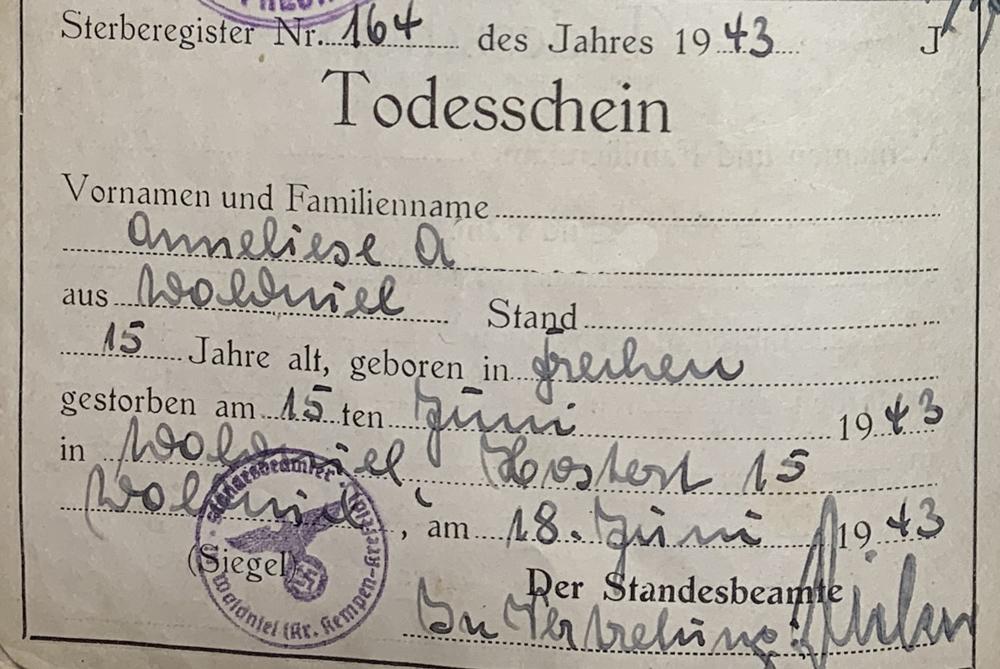 Sterberegister Nr. 164 des Jahres 1943 J
Todesschein
Vornamen und Familienname
Anneliese A
aus Waldniel Stand
15 Jahre alt, geboren in
gestorben am 15ten Juni 1943
in Waldniel, Hostert 15
Waldniel, am 18. Juni 1943
(Siegel)
Standesbeamter
Waldniel (Kr. Kempen-Krefeld)
Der Standesbeamte
In Vertretung: